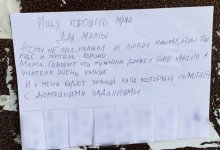 Ищу хорошего мужа
для мамы
чтобы не пил, мамам и любил книжку, если ты
еще и учитель хорошо
Мама говорит что мужчина должен быть умным а
учителя очень умные
и у меня будет умный папа который поможет
с домашними заданиями